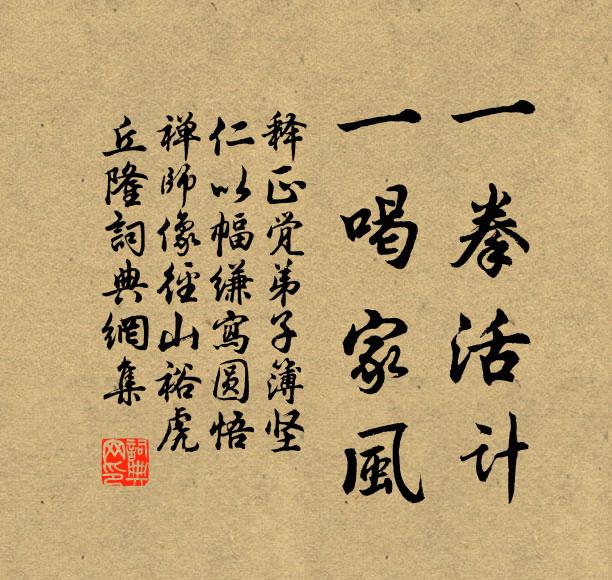 一拳活计
一喝家风
释正觉弟子簿坚
仁以幅缣寫圆悟
禅師像径山裕虎
丘隆詞典網集
詞典网印